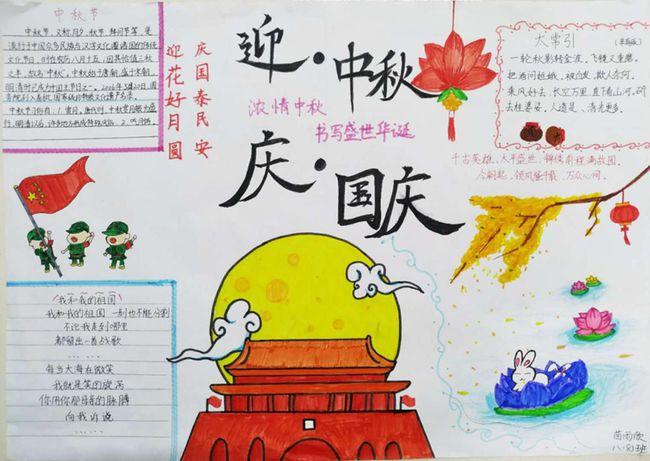 中秋节
中秋节，又称月夕、秋节、拜月节等，是
流行于中国众多民族与汉字文化圈诸国的传统
文化节日，时在农历八月十五，因其恰值三秋
之半，故名“中秋”。中秋始于唐朝，盛于宋朝，
明清时已成为中国主节日之一。2006年5月20日，国
务院列入首批国家级非物质文化遗产名录。
中秋节习俗有：1、赏月。唐代时，中秋赏月颇盛
行，明清以后， 2、吃月饼
庆国泰民安
迎花好月圆
迎·中秋
浓情中秋
书写盛世华诞
庆·国庆
太常引
一轮秋影转金波，飞镜又重磨。
把酒问姮娥，被白发，欺人奈何。
乘风好去，长空万里，直下看山河。斫
去桂婆娑，人道是，清光更多。
千古英雄，太平盛世，锦绣前程满故园。
今朝起，领风骚千载，万众心同。
《我和我的祖国》
我和我的祖国 一刻也不能分割
不论我走到哪里
都留出一首战歌
……
每当大海在微笑
我就是笑的旋涡
你用你那母亲的脉搏
向我诉说
……